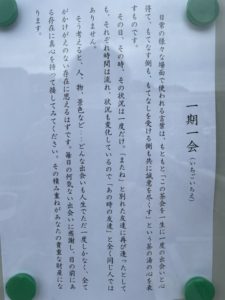 一期一会（いちごいちえ）
日常の様々な場面で使われる言葉は、もともと「この茶会を一生に一度の出会いと心
得て、もてなす側も、もてなしを受ける側も共に誠意を尽くす」という茶の湯の心を表
すものです。
その日、その時、その状況は一度だけ。「またね」と別れた友達に再び逢ったとして
も、それぞれ時間は流れ、状況も変化しているので「あの時の友達」と全く同じ人では
ありません。
そう考えると、人、物、景色など…どんな出会いも人生でただ一度しかなく、全て
がかけがえのない存在に思えるはずです。毎日の何気ない出会いに感謝し、目の前にあ
る存在に真心を持って接してみてください。その積み重ねがあなたの貴重な財産にな
ります。